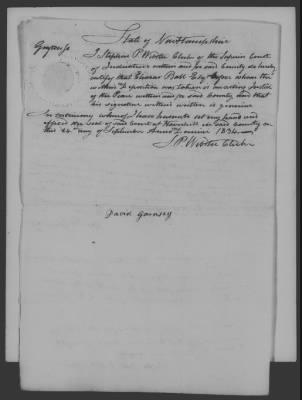 State of New Hampshire
I Stephen P. Webster Clerk of the Superior Court
of Judicature within and for said County do hereby
certify that Ebenezer Ball Esq before whom the
within deposition was taken is Justice
of the Peace within and for said County and that
his signature within written is genuine
In testimony whereof I have hereunto set my hand and
affixed the Seal of said Court at Haverhill in said County on
this 24th day of September Anno Domini 1834
S P Webster Clerk
David Garnsey